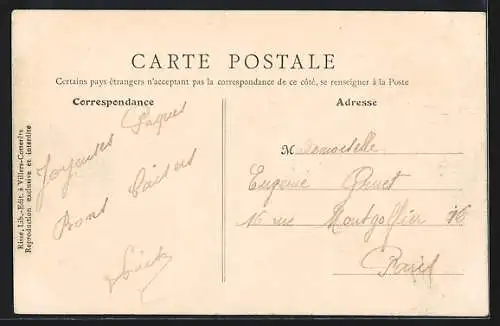 CARTE POSTALE
Certains pays étrangers n'acceptant pas la correspondance de ce côté, se renseigner à la Poste
Correspondance
Adresse
Risse, Lib.-Edit. à Villers-Cotterêts
Reproduction exclusive et interdite
Joyeuses Paques
Bons baisers
Mademoiselle
Eugénie
16 rue Montgolfier 16
Paris